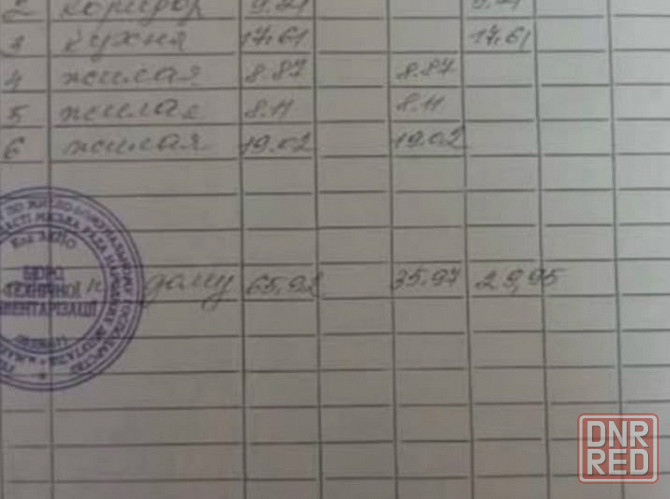 2 коридор 9.21 9.21
3 кухня 17.61 17.61
4 жилая 8.87 8.87
5 жилая 8.11 8.11
6 жилая 19.02 19.02
дому 65,92 35,97 29,95
БЮРО
ТЕХНІЧНОЇ
ІНВЕНТАРИЗАЦІЇ
DNR
RED